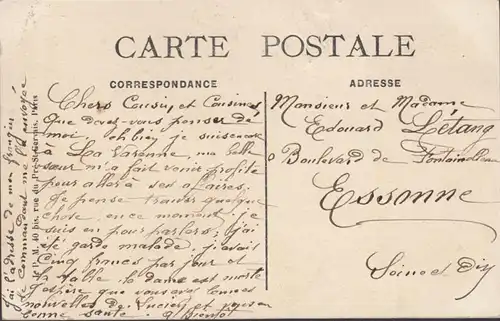 CARTE POSTALE
CORRESPONDANCE
ADRESSE
Chers Cousin et Cousines
Que devez-vous penser de
moi, eh bien je suis encore
à La Varenne, ma belle
sœur m'a fait venir profite
pour aller à ses affaires.
Je pense trouver quelque
chose, en ce moment, je
suis en pour parlers; j'ai
été garde malade, j'avait
Cinq francs par jour et
la table. la dame est morte
J'espère que vous avez bonnes
nouvelles de Lucien et vous en
bonne santé. à Bientôt
J'ai l'adresse de mon
le Commandant me l'a envoyée
40 bis, rue du Pré-St-Gervais, Paris
Monsieur et Madame
Edouard Létang
Boulevard de Fontainebleau
Essonne
Seine et Oise